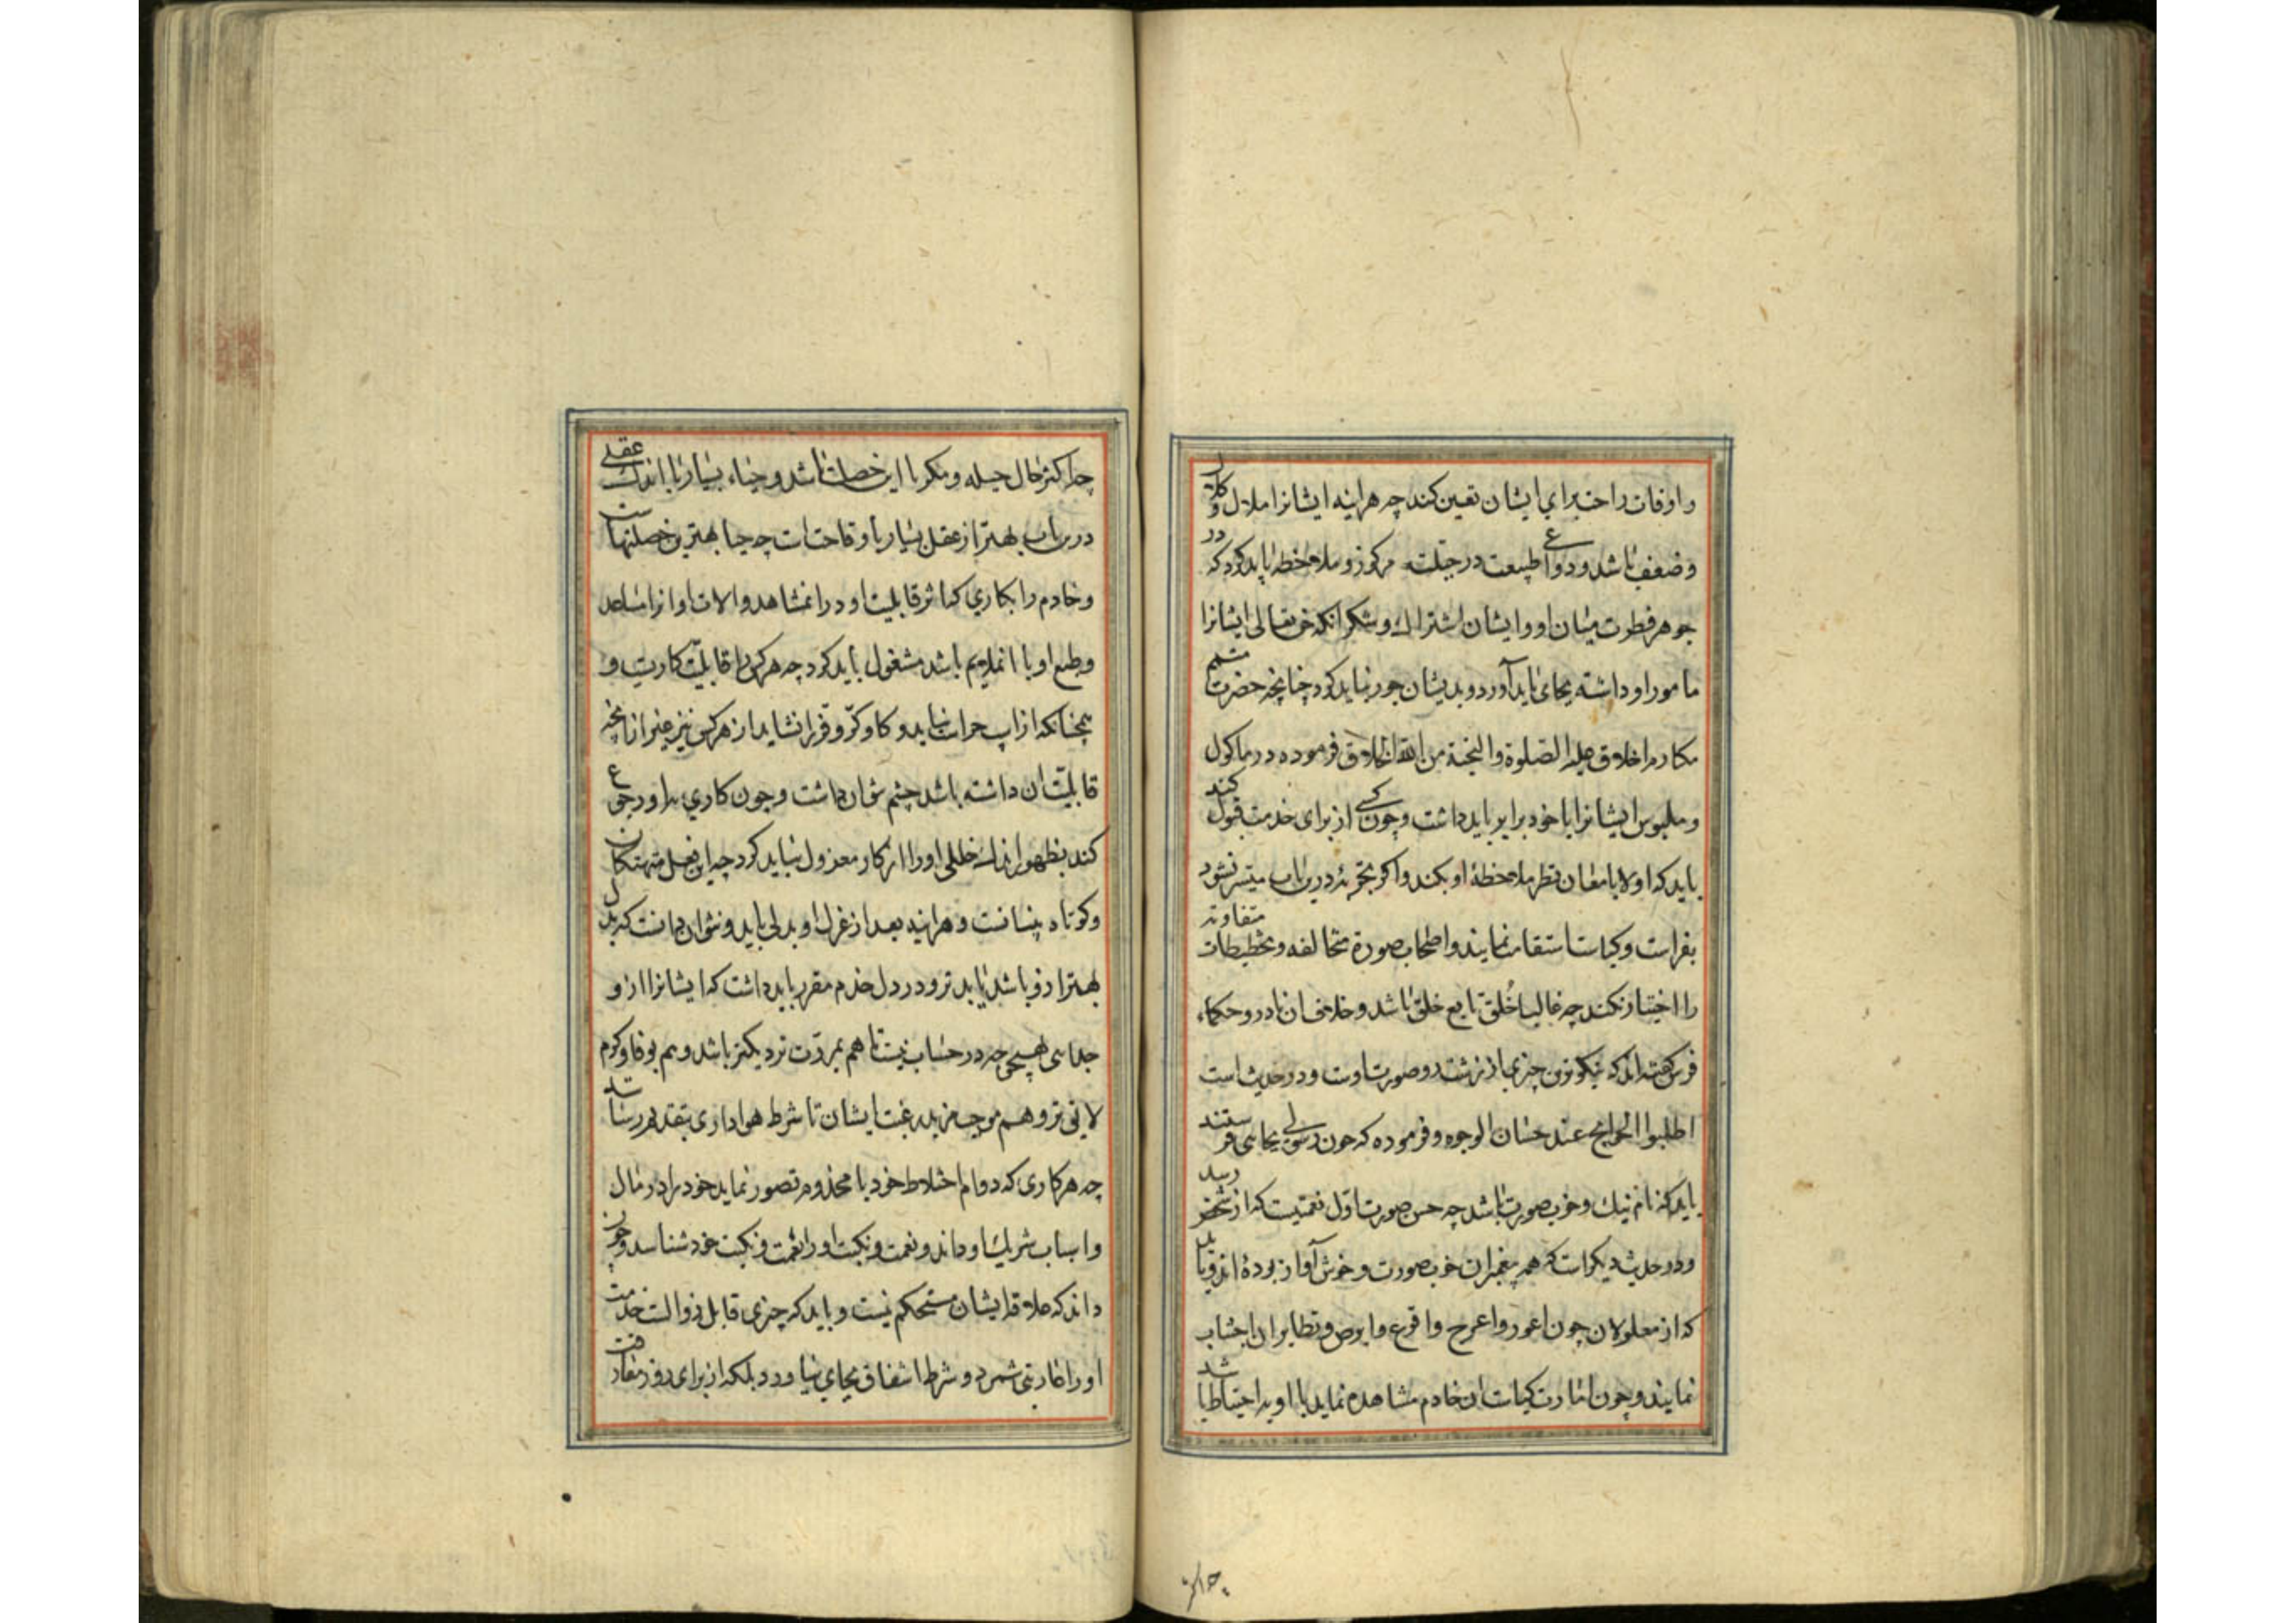 و اوقات راحت برای ایشان تعیین کند چه هراینه ایشانرا ملال و کلال
و ضعف باشد و دواعی طبیعت در جبلت مرکوز و ملاحظه باید کرد که در
جوهر فطرت میان او و ایشان اشتراک و شکر آنکه حق تعالی ایشانرا
مامور او داشته بجای باید آورد و بدیشان جور نباید کرد چنانچه حضرت متمم
مکارم اخلاق علیه الصلوة والتحیة من الله الخلاق فرموده در ماکول
و ملبوس ایشانرا با خود برابر باید داشت و چون کسی از برای خدمت قبول کند
باید که اولا بامعان نظر ملاحظهٔ او بکند و اگر تجربه درین باب میسر نشود
بفراست و کیاست استقامت نمایند و اصحاب صورة متخالفه و تخطیطات متفاوته
را اختیار نکند چه غالبا خُلق تابع خلق باشد و خلاف آن نادر و حکماء
فرس گفته اند که نیکوترین چیزی از زشت رو صورت اوست و در حدیث است
اطلبوا الحوایج عند حسان الوجوه و فرموده که چون رسولی بجایی فرستند
باید که نام نیک و خوب صورت باشد چه حسن صورت اول نعمتیست که از شخص رسد
و در حدیث دیگر است که همه پیغمبران خوب صورت و خوش آواز بوده اند و باید
که از معلولان چون اعور و اعرج و اقرع و ابرص و نظایر ان اجتناب
نمایند و چون امارت کیاست از خادم مشاهده نماید با او به احتیاط باشد
چه اکثر حال حیله و مکر با این خصلت باشد و حیاء بسیار با اندک عقلی
درین باب بهتر از عقل بسیار با وقاحت است چه حیا بهترین خصلتهاست
و خادم را بکاری که اثر قابلیت او در ان مشاهد و الات او انرا مساعد
و طبع او با ان ملایم باشد مشغول باید کرد چه هر کس را قابلیت کاریست و
همچنانکه از اسپ حراثت نیاید و گاو کرّ و فرّ را نشاید از هر کس نیز غیر از انچه
قابلیت ان داشته باشد چشم نتوان داشت و چون کاری بدو رجوع
کند بظهور اندک خللی او را از کار معزول نباید کرد چه این فعل متهتکان
و کوتاه بینانست و هراینه بعد از عزل او بدلی باید و نتوان دانست که بدل
بهتر ازو باشد یا بدتر و در دل خدم مقرر باید داشت که ایشانرا ازو
جدایی بهیچ وجه در حساب نیست تا هم بمروّت نزدیکتر باشد و هم بوفا و کرم
لایق تر و هم موجب مزید رغبت ایشان تا شرط هواداری بتقدیم رسانند
چه هر کاری که دوام اختلاط خود با مخدوم تصور نماید خود را در مال
و اسباب شریک او داند و نعمت و نکبت او را نعمت و نکبت خود شناسد و چون
داند که علاقه ایشان مستحکم نیست و باید که چیزی قابل زوالست خدمت
او را عاریتی شمرد و شرط اشفاق بجای نیاورد بلکه از برای روز مفارقت